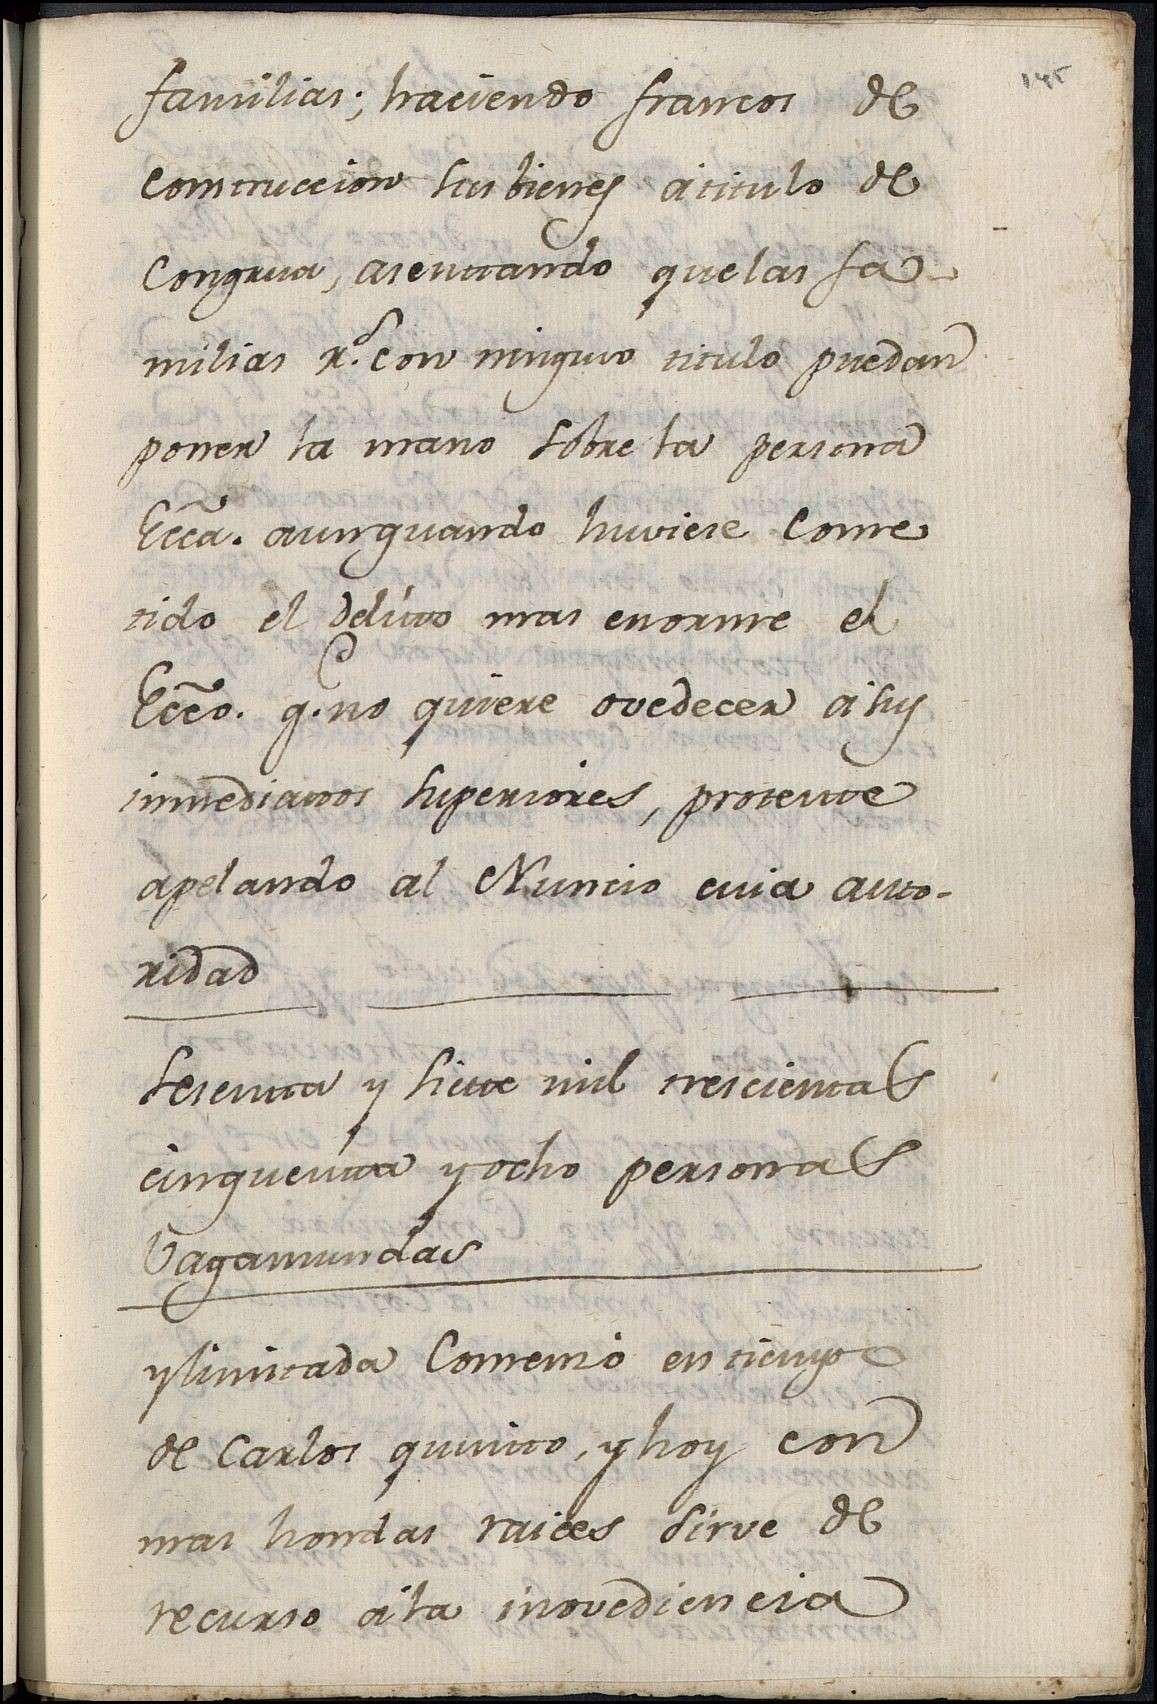 145
familias; haciendo francos de
contruccion sus bienes átitulo de
Congrua, asentando quelas fa-
milias R.s con ningun titulo puedan
poner la mano sobre la persona
Ecca. aunquando huviese Come
tido el delitto mas enorme el
Ecco. q.e no quiere ovedecer ásus
inmediattos superiores, protextte
apelando al Nuncio cuia autto-
ridad
Sesentta y Siette mil trescientas
cinquentta y ocho personas
Vagamundas
ylimittada Comenzó en tiempo
de Carlos quintto, y hoy con
mas hondas raices sirve de
recurso ála inovediencia